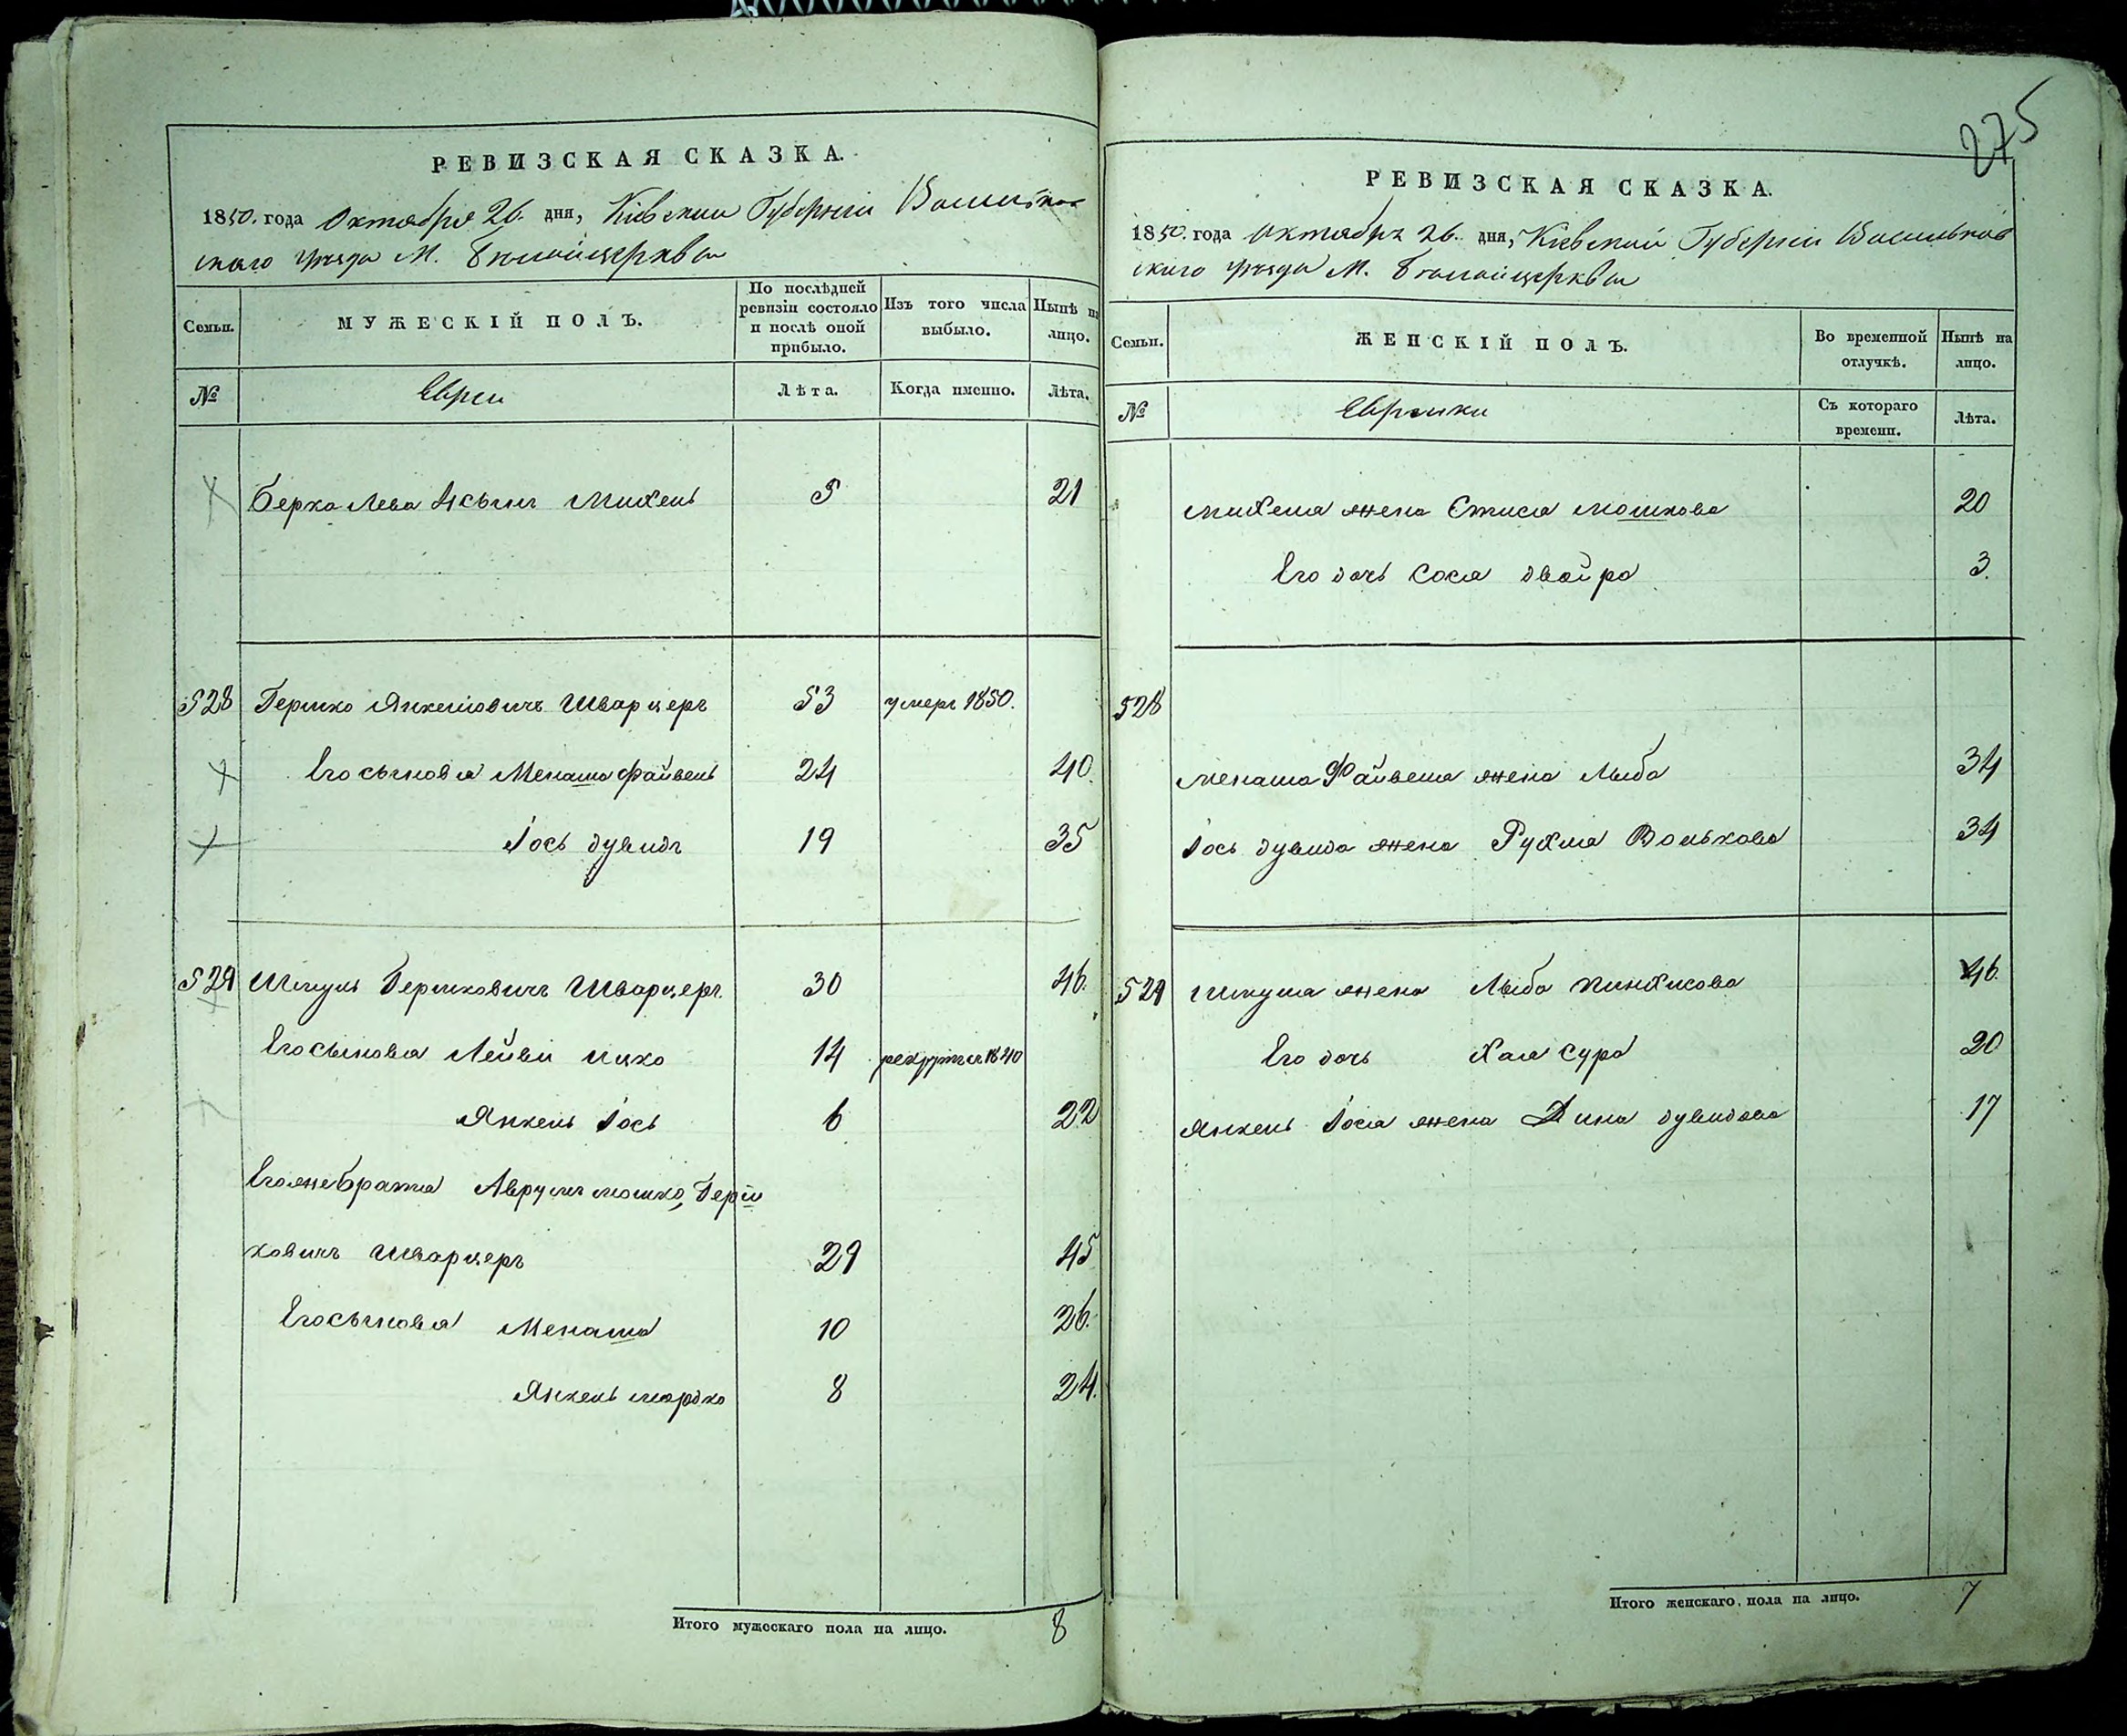 РЕВИЗСКАЯ СКАЗКА.
1850. года Октября 26. дня, Кіевской Губерніи Василько
вскаго уезда М. Белойцеркви
Семьи.
МУЖЕСКІЙ ПОЛЪ.
По послѣдней
ревизіи состояло
и послѣ оной
прибыло.
Изъ того числа
выбыло.
Нынѣ на
лицо.
№
Евреи
Лѣта.
Когда именно.
Лѣта.
Берка Лева 4 сынъ Михель 5 21
528 Гершко Янкелiовичъ Шварцеръ 53 умеръ 1850.
Его сыновья Менаша Файвель 24 40.
Iось Дувидъ 19 35
529 Шмуль Гершковичъ Шварцеръ. 30 46.
Его сыновья Лейви Ицко 14 рекрутъ 1840
Янкель Iось 6 22
Его же брата Аврумъ Мошко, Герш
ковичъ Шварцеръ 29 45
Его сыновья Менаша 10 26.
Янкель Мордко 8 24.
Итого мужескаго пола на лицо. 8
275
РЕВИЗСКАЯ СКАЗКА.
1850. года Октября 26. дня, Кіевской Губерніи Васильков
скаго уезда М. Белойцеркви
Семьи.
ЖЕНСКІЙ ПОЛЪ.
Во временной
отлучкѣ.
Нынѣ на
лицо.
№
Еврейки
Съ котораго
времени.
Лѣта.
Михеля жена Етися Мошкова 20
Его дочь Сося Двойра 3.
528
Менаша Файвеля жена Лыба 34
Iось Дувида жена Рухля Волькова 34
529 Шмуля жена Лыба Пинхисова 46.
Его дочь Хая Сура 20
Янкель Iося жена Дина Дувидова 17
Итого женскаго пола на лицо. 7